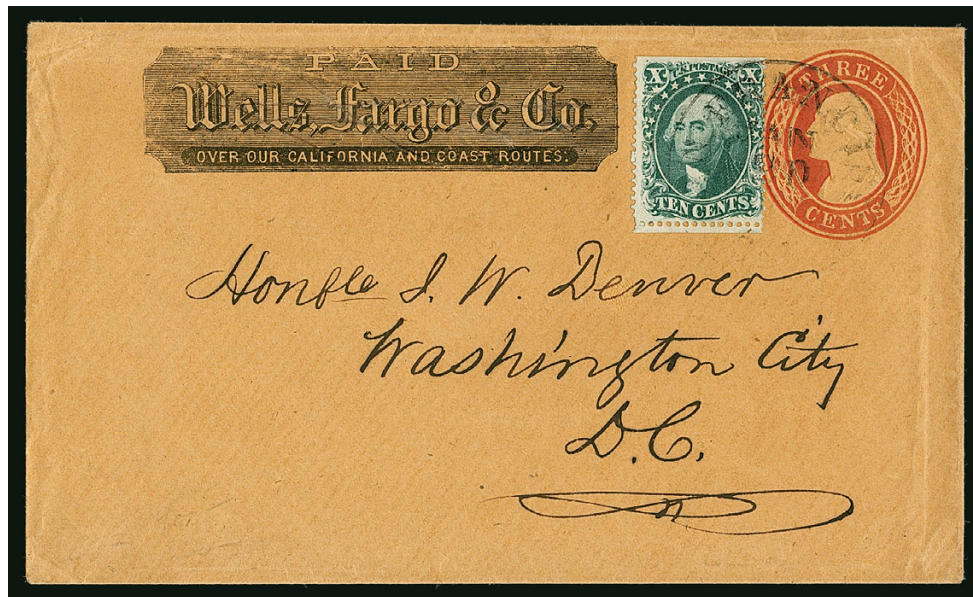 PAID
Wells, Fargo & Co.
OVER OUR CALIFORNIA AND COAST ROUTES.
U.S. POSTAGE
X X
TEN CENTS
THREE
CENTS
Honble J. W. Denver
Washington City
D.C.